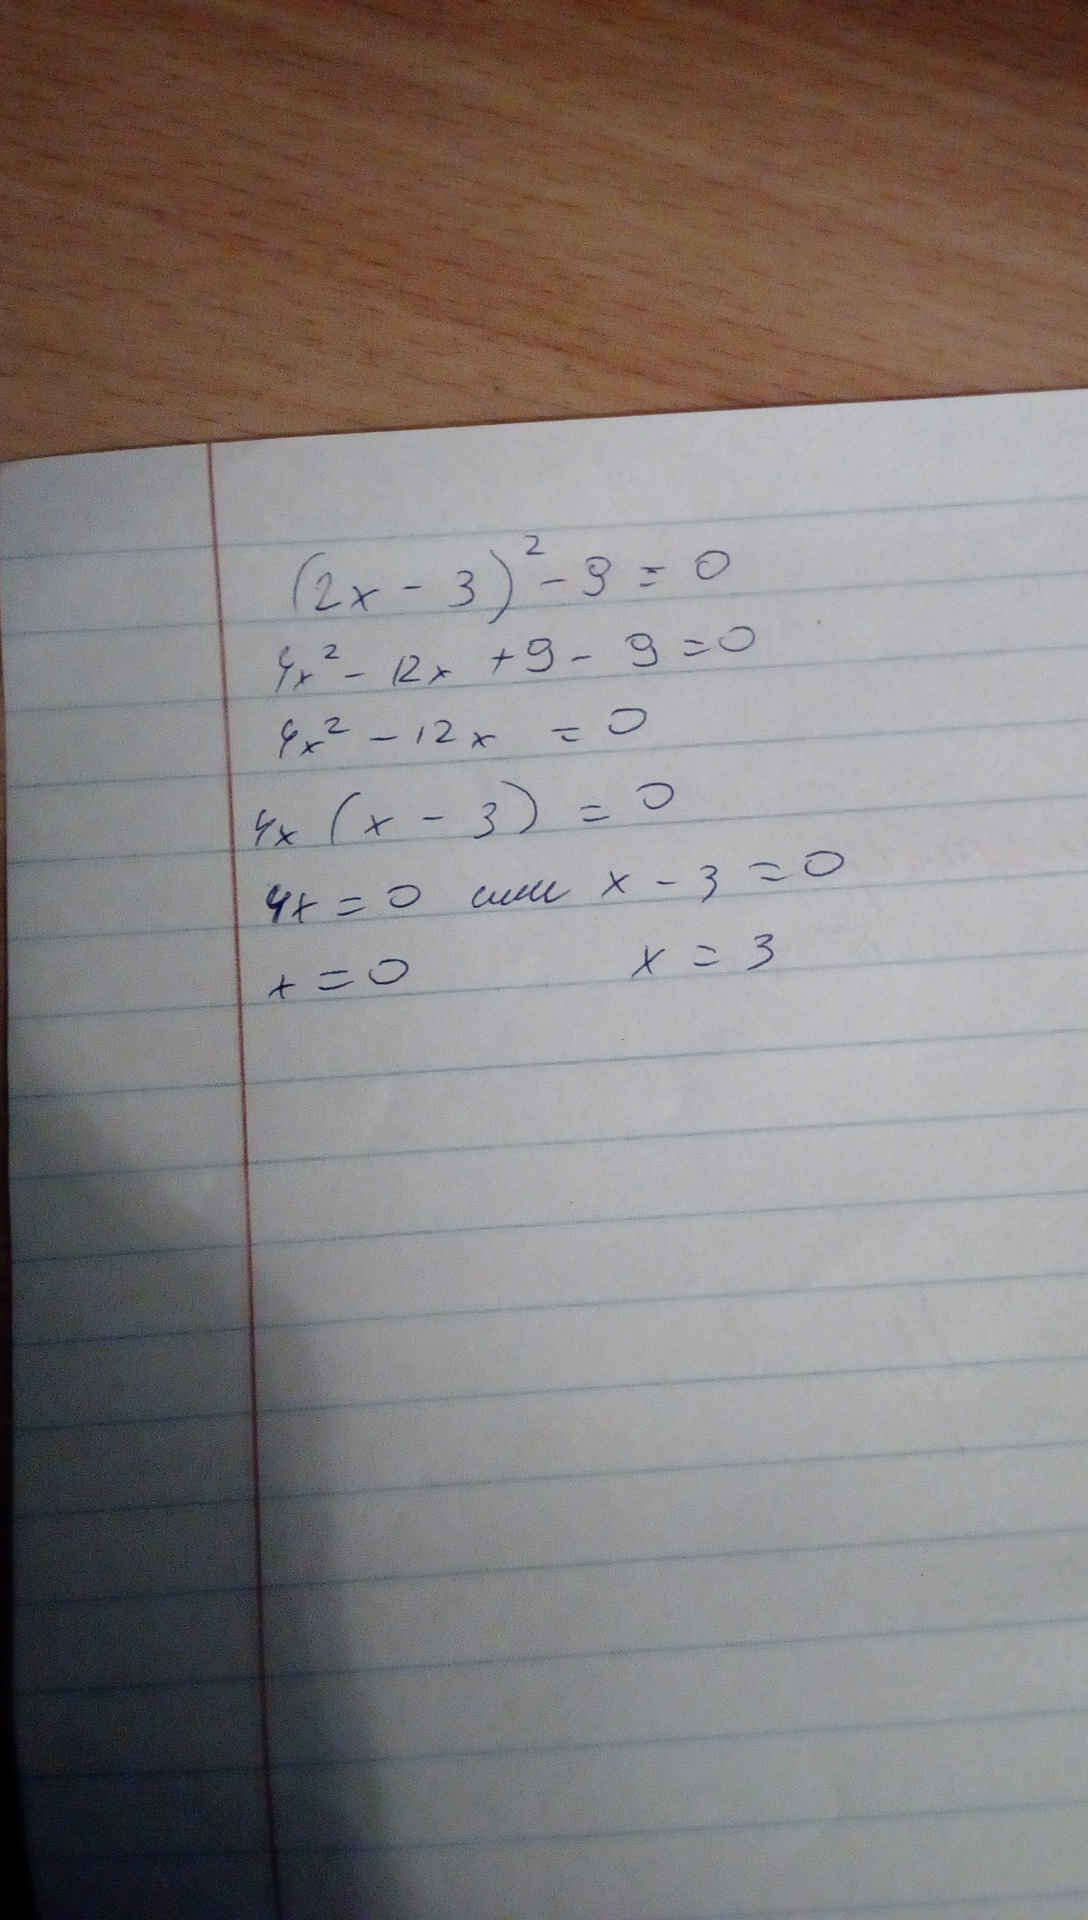 (2x - 3)² - 9 = 0
4x² - 12x + 9 - 9 = 0
4x² - 12x = 0
4x (x - 3) = 0
4x = 0 или x - 3 = 0
x = 0 x = 3